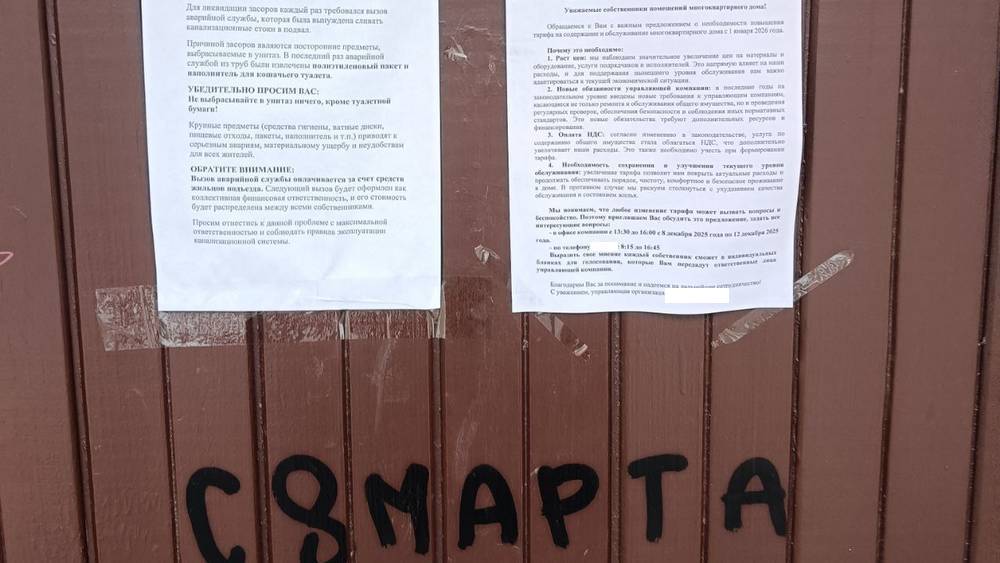 Для ликвидации засоров каждый раз требовался вызов
аварийной службы, которая была вынуждена сливать
канализационные стоки в подвал.
Причиной засоров являются посторонние предметы,
выбрасываемые в унитаз. В последний раз аварийной
службой из труб были извлечены полиэтиленовый пакет и
наполнитель для кошачьего туалета.
УБЕДИТЕЛЬНО ПРОСИМ ВАС:
Не выбрасывайте в унитаз ничего, кроме туалетной
бумаги!
Крупные предметы (средства гигиены, ватные диски,
пищевые отходы, пакеты, наполнитель и т.п.) приводят к
серьезным авариям, материальному ущербу и неудобствам
для всех жителей.
ОБРАТИТЕ ВНИМАНИЕ:
Вызов аварийной службы оплачивается за счет средств
жильцов подъезда. Следующий вызов будет оформлен как
коллективная финансовая ответственность, и его стоимость
будет распределена между всеми собственниками.
Просим отнестись к данной проблеме с максимальной
ответственностью и соблюдать правила эксплуатации
канализационной системы.
Уважаемые собственники помещений многоквартирного дома!
Обращаемся к Вам с важным предложением о необходимости повышения
тарифа на содержание и обслуживание многоквартирного дома с 1 января 2026 года.
Почему это необходимо:
1. Рост цен: мы наблюдаем значительное увеличение цен на материалы и
оборудование, услуги подрядчиков и исполнителей. Это напрямую влияет на наши
расходы, и для поддержания нынешнего уровня обслуживания нам важно
адаптироваться к текущей экономической ситуации.
2. Новые обязанности управляющей компании: в последние годы на
законодательном уровне введены новые требования к управляющим компаниям,
касающиеся не только ремонта и обслуживания общего имущества, но и проведения
регулярных проверок, обеспечения безопасности и соблюдения иных нормативных
стандартов. Эти новые обязательства требуют дополнительных ресурсов и
финансирования.
3. Оплата НДС: согласно изменению в законодательстве, услуга по
содержанию общего имущества стала облагаться НДС, что дополнительно
увеличивает наши расходы. Это также необходимо учесть при формировании
тарифа.
4. Необходимость сохранения и улучшения текущего уровня
обслуживания: увеличение тарифа позволит нам покрыть актуальные расходы и
продолжать обеспечивать порядок, чистоту, комфортное и безопасное проживание
в доме. В противном случае мы рискуем столкнуться с ухудшением качества
обслуживания и состоянием жилья.
Мы понимаем, что любое изменение тарифа может вызвать вопросы и
беспокойство. Поэтому приглашаем Вас обсудить это предложение, задать все
интересующие вопросы:
- в офисе компании с 13:30 до 16:00 с 8 декабря 2025 по 12 декабря 2025
года.
- по телефону 8:15 до 16:45
Выразить свое мнение каждый собственник сможет в индивидуальных
бланках для голосования, которые Вам передадут ответственные лица
управляющей компании.
Благодарим Вас за понимание и надеемся на дальнейшее сотрудничество!
С уважением, управляющая организация
С 8 МАРТА